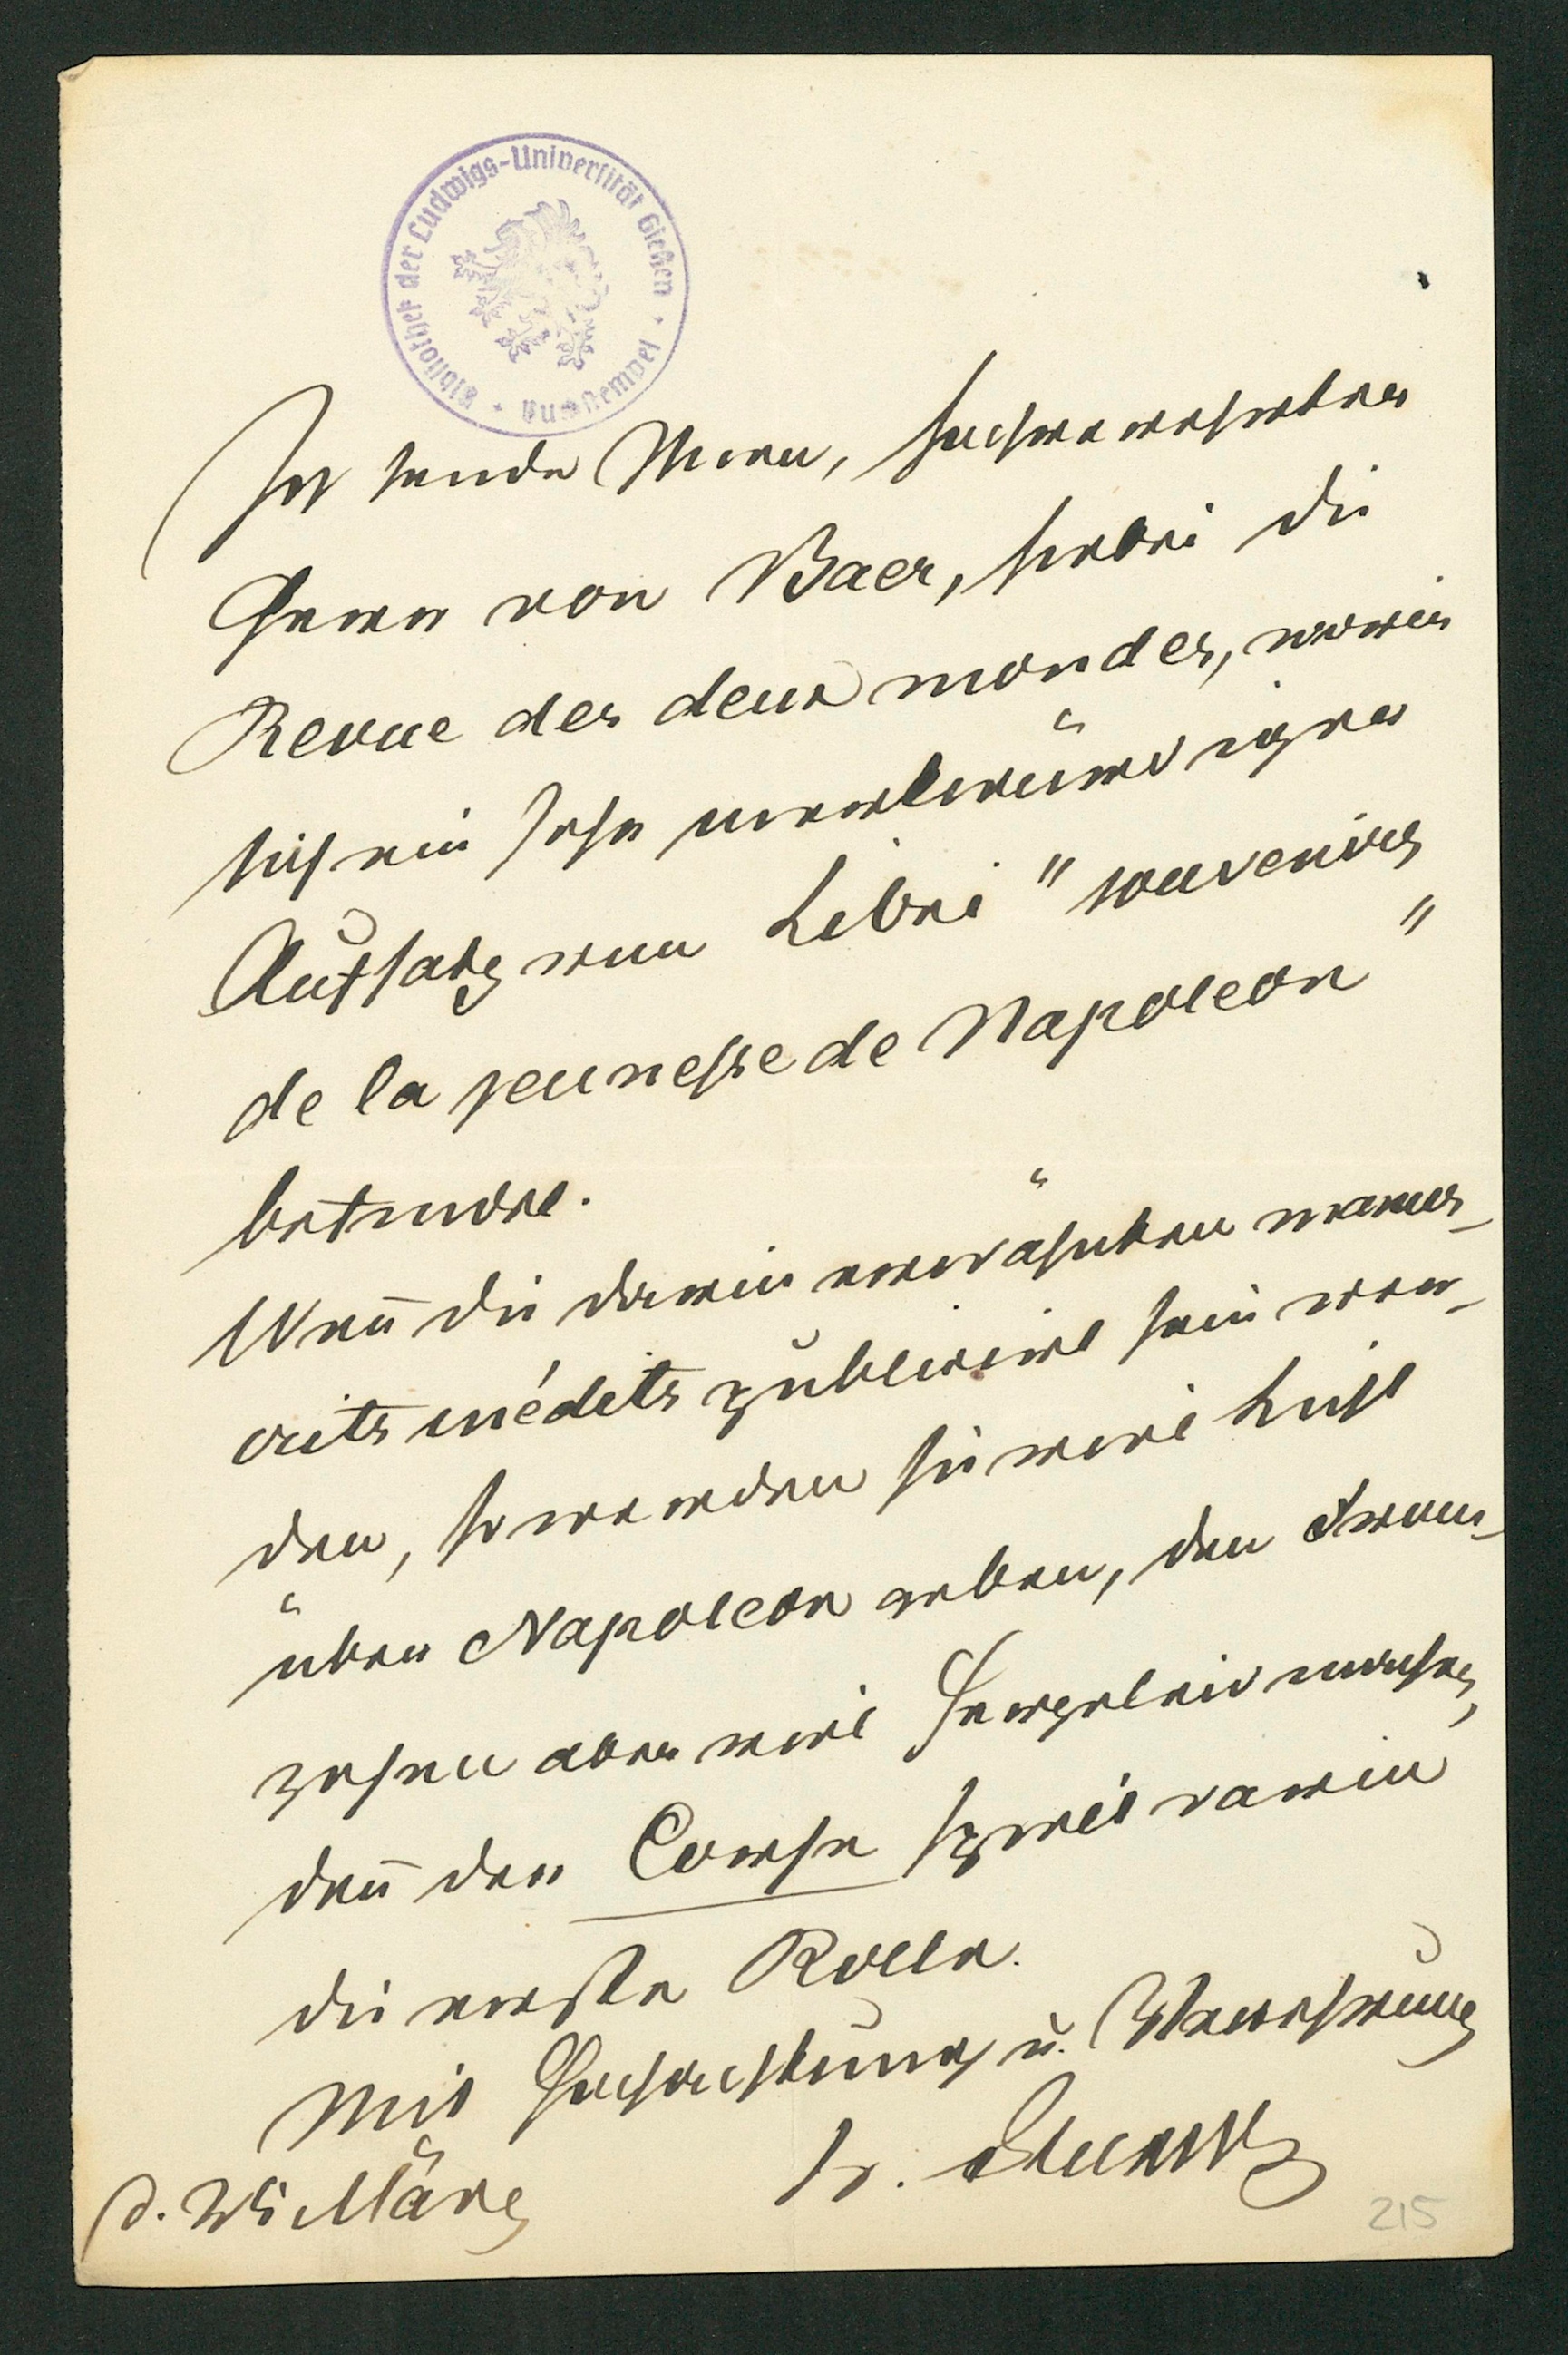 Bibliothek der Ludwigs-Universität Gießen
Ich sende Ihnen, hochverehrter
Herr von Baer, hierbei die
Revue des deux mondes, worin
sich ein sehr merkwürdiger
Aufsatz von Libri "souvenirs
de la jeunesse de Napoleon"
befindet.
Wen̄ die darin erwähnten manus-
crits inédits publicirt sein wer-
den, so werden sie viel Licht
über Napoleon geben, den Fran-
zosen aber viel Herzeleid machen,
den̄ der Corse spielt darin
die erste Rolle.
Mit Hochachtung u. Verehrung
d. 25 März
215